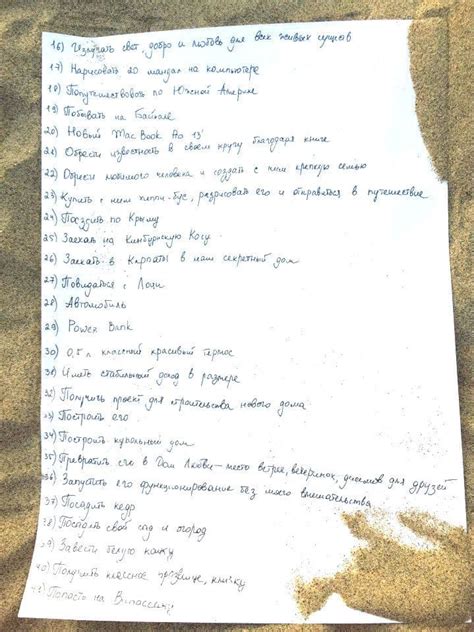 16) Излучать свет, добро и любовь для всех живых существ
17) Нарисовать 20 мандал на компьютере
18) Попутешествовать по Южной Америке
19) Побывать на Байкале
20) Новый MacBook Air 13'
21) Обрести известность в своем кругу благодаря книге
22) Обрести любимого человека и создать с ним крепкую семью
23) Купить с ним хиппи-бус, разрисовать его и отправиться в путешествие
24) Поездить по Крыму
25) Заехать на Кинбурнскую Косу
26) Заехать в Карпаты в наш секретный дом
27) Повидаться с
28) Автомобиль
29) Power Bank
30) 0,5 л классный красивый термос
31) Иметь стабильный доход в размере
32) Получить проект для строительства нового дома
33) Построить его
34) Построить купольный дом
35) Превратить его в Дом Любви - место встреч, вечеринок, для друзей
36) Запустить его функционирование без моего вмешательства
37) Посадить кедр
38) свой сад и огород
39) Завести белую
40) Получить классное прозвище, кличку
41) Попасть на Випассану